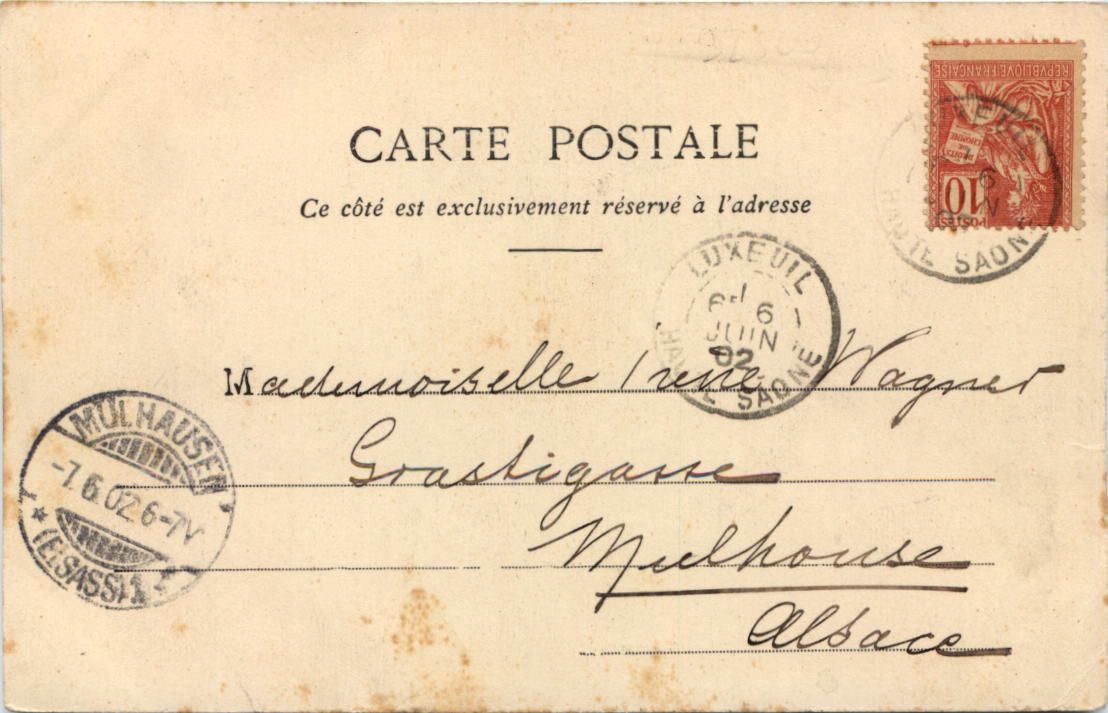 CARTE POSTALE
Ce côté est exclusivement réservé à l'adresse
REPVBLIQVE FRANÇAISE
DROITS DE L'HOMME
10
POSTES
HAUTE SAONE
LUXEUIL
6 JUIN
02
HAUTE SAONE
Mademoiselle Irène Wagner
Grastigasse
Mulhouse
Alsace
MÜLHAUSEN
-7.6.02 6-7V
(ELSASS) 1